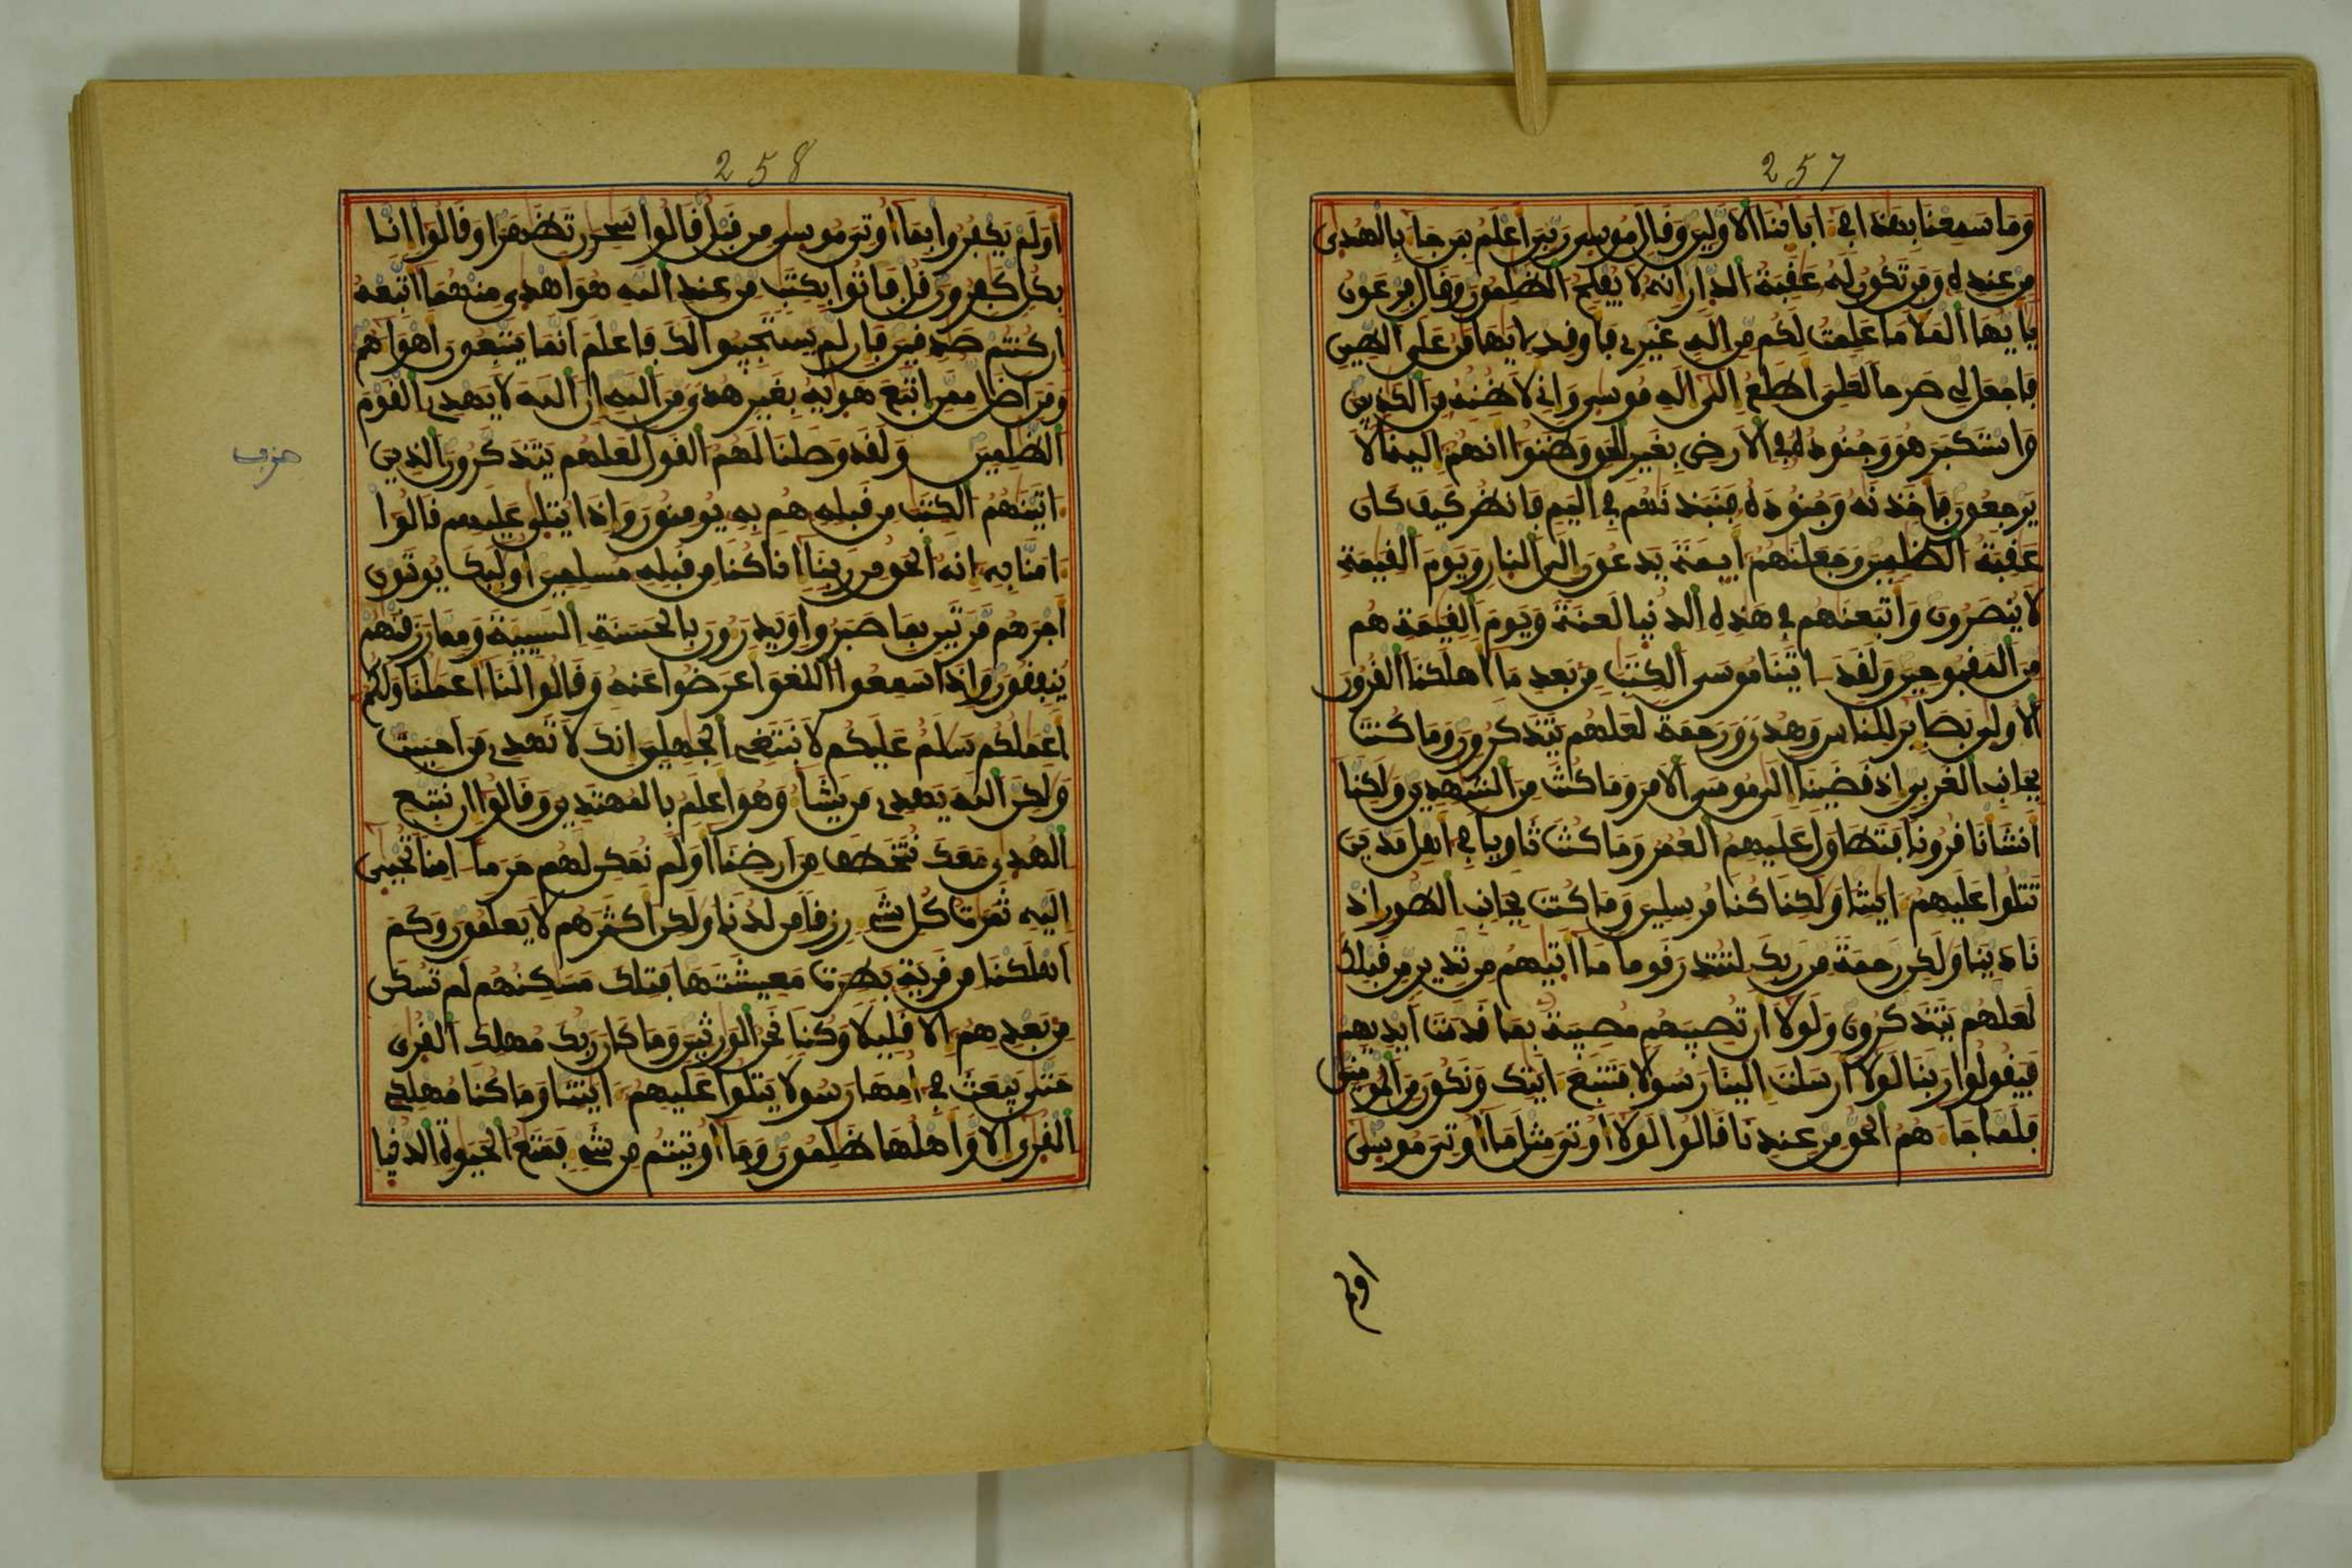 257
وَمَا سَمِعْنَا بِهَٰذَا فِي ءَابَآئِنَا الْأَوَّلِينَ وَقَالَ مُوسَىٰ رَبِّيَ أَعْلَمُ بِمَن جَآءَ بِالْهُدَىٰ
مِنْ عِندِهِ وَمَن تَكُونُ لَهُ عَٰقِبَةُ الدَّارِ إِنَّهُ لَا يُفْلِحُ الظَّٰلِمُونَ وَقَالَ فِرْعَوْنُ
يَٰأَيُّهَا الْمَلَأُ مَا عَلِمْتُ لَكُم مِّنْ إِلَٰهٍ غَيْرِي فَأَوْقِدْ لِي يَٰهَٰمَٰنُ عَلَى الطِّينِ
فَاجْعَل لِّي صَرْحًا لَّعَلِّيَ أَطَّلِعُ إِلَىٰ إِلَٰهِ مُوسَىٰ وَإِنِّي لَأَظُنُّهُ مِنَ الْكَٰذِبِينَ
وَاسْتَكْبَرَ هُوَ وَجُنُودُهُ فِي الْأَرْضِ بِغَيْرِ الْحَقِّ وَظَنُّوا أَنَّهُمْ إِلَيْنَا لَا
يَرْجِعُونَ فَأَخَذْنَٰهُ وَجُنُودَهُ فَنَبَذْنَٰهُمْ فِي الْيَمِّ فَانظُرْ كَيْفَ كَانَ
عَٰقِبَةُ الظَّٰلِمِينَ وَجَعَلْنَٰهُمْ أَئِمَّةً يَدْعُونَ إِلَى النَّارِ وَيَوْمَ الْقِيَٰمَةِ
لَا يُنصَرُونَ وَأَتْبَعْنَٰهُمْ فِي هَٰذِهِ الدُّنْيَا لَعْنَةً وَيَوْمَ الْقِيَٰمَةِ هُم
مِّنَ الْمَقْبُوحِينَ وَلَقَدْ ءَاتَيْنَا مُوسَى الْكِتَٰبَ مِن بَعْدِ مَا أَهْلَكْنَا الْقُرُونَ
الْأُولَىٰ بَصَآئِرَ لِلنَّاسِ وَهُدًى وَرَحْمَةً لَّعَلَّهُمْ يَتَذَكَّرُونَ وَمَا كُنتَ
بِجَانِبِ الْغَرْبِيِّ إِذْ قَضَيْنَا إِلَىٰ مُوسَى الْأَمْرَ وَمَا كُنتَ مِنَ الشَّٰهِدِينَ وَلَٰكِنَّا
أَنشَأْنَا قُرُونًا فَتَطَاوَلَ عَلَيْهِمُ الْعُمُرُ وَمَا كُنتَ ثَاوِيًا فِي أَهْلِ مَدْيَنَ
تَتْلُوا عَلَيْهِمْ ءَايَٰتِنَا وَلَٰكِنَّا كُنَّا مُرْسِلِينَ وَمَا كُنتَ بِجَانِبِ الطُّورِ إِذْ
نَادَيْنَا وَلَٰكِن رَّحْمَةً مِّن رَّبِّكَ لِتُنذِرَ قَوْمًا مَّا أَتَىٰهُم مِّن نَّذِيرٍ مِّن قَبْلِكَ
لَعَلَّهُمْ يَتَذَكَّرُونَ وَلَوْلَا أَن تُصِيبَهُم مُّصِيبَةٌ بِمَا قَدَّمَتْ أَيْدِيهِمْ
فَيَقُولُوا رَبَّنَا لَوْلَا أَرْسَلْتَ إِلَيْنَا رَسُولًا فَنَتَّبِعَ ءَايَٰتِكَ وَنَكُونَ مِنَ الْمُومِنِينَ
فَلَمَّا جَآءَهُمُ الْحَقُّ مِنْ عِندِنَا قَالُوا لَوْلَا أُوتِيَ مِثْلَ مَا أُوتِيَ مُوسَىٰ
أولم
258
أَوَلَمْ يَكْفُرُوا بِمَا أُوتِيَ مُوسَىٰ مِن قَبْلُ قَالُوا سَٰحِرَٰنِ تَظَٰهَرَا وَقَالُوا إِنَّا
بِكُلٍّ كَٰفِرُونَ قُلْ فَاتُوا بِكِتَٰبٍ مِّنْ عِندِ اللَّهِ هُوَ أَهْدَىٰ مِنْهُمَا أَتَّبِعْهُ
إِن كُنتُمْ صَٰدِقِينَ فَإِن لَّمْ يَسْتَجِيبُوا لَكَ فَاعْلَمْ أَنَّمَا يَتَّبِعُونَ أَهْوَآءَهُمْ
وَمَنْ أَضَلُّ مِمَّنِ اتَّبَعَ هَوَىٰهُ بِغَيْرِ هُدًى مِّنَ اللَّهِ إِنَّ اللَّهَ لَا يَهْدِي الْقَوْمَ
الظَّٰلِمِينَ وَلَقَدْ وَصَّلْنَا لَهُمُ الْقَوْلَ لَعَلَّهُمْ يَتَذَكَّرُونَ الَّذِينَ
حزب
ءَاتَيْنَٰهُمُ الْكِتَٰبَ مِن قَبْلِهِ هُم بِهِ يُومِنُونَ وَإِذَا يُتْلَىٰ عَلَيْهِمْ قَالُوا
ءَامَنَّا بِهِ إِنَّهُ الْحَقُّ مِن رَّبِّنَا إِنَّا كُنَّا مِن قَبْلِهِ مُسْلِمِينَ أُولَٰئِكَ يُوتَوْنَ
أَجْرَهُم مَّرَّتَيْنِ بِمَا صَبَرُوا وَيَدْرَءُونَ بِالْحَسَنَةِ السَّيِّئَةَ وَمِمَّا رَزَقْنَٰهُمْ
يُنفِقُونَ وَإِذَا سَمِعُوا اللَّغْوَ أَعْرَضُوا عَنْهُ وَقَالُوا لَنَا أَعْمَٰلُنَا وَلَكُمْ
أَعْمَٰلُكُمْ سَلَٰمٌ عَلَيْكُمْ لَا نَبْتَغِي الْجَٰهِلِينَ إِنَّكَ لَا تَهْدِي مَنْ أَحْبَبْتَ
وَلَٰكِنَّ اللَّهَ يَهْدِي مَن يَشَآءُ وَهُوَ أَعْلَمُ بِالْمُهْتَدِينَ وَقَالُوا إِن نَّتَّبِعِ
الْهُدَىٰ مَعَكَ نُتَخَطَّفْ مِنْ أَرْضِنَا أَوَلَمْ نُمَكِّن لَّهُمْ حَرَمًا ءَامِنًا تُجْبَىٰ
إِلَيْهِ ثَمَرَٰتُ كُلِّ شَيْءٍ رِّزْقًا مِّن لَّدُنَّا وَلَٰكِنَّ أَكْثَرَهُمْ لَا يَعْلَمُونَ وَكَمْ
أَهْلَكْنَا مِن قَرْيَةٍ بَطِرَتْ مَعِيشَتَهَا فَتِلْكَ مَسَٰكِنُهُمْ لَمْ تُسْكَن
مِّن بَعْدِهِمْ إِلَّا قَلِيلًا وَكُنَّا نَحْنُ الْوَٰرِثِينَ وَمَا كَانَ رَبُّكَ مُهْلِكَ الْقُرَىٰ
حَتَّىٰ يَبْعَثَ فِي أُمِّهَا رَسُولًا يَتْلُوا عَلَيْهِمْ ءَايَٰتِنَا وَمَا كُنَّا مُهْلِكِي
الْقُرَىٰ إِلَّا وَأَهْلُهَا ظَٰلِمُونَ وَمَا أُوتِيتُم مِّن شَيْءٍ فَمَتَٰعُ الْحَيَوٰةِ الدُّنْيَا